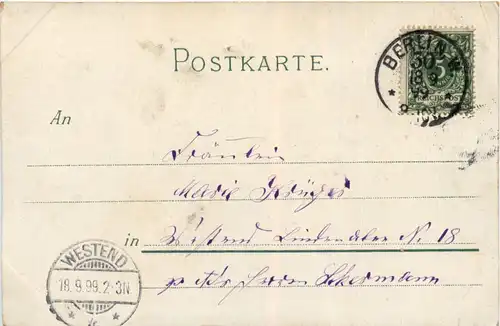 POSTKARTE.
BERLIN W.
50
18 9
99
5
REICHSPOST
An
Fräulein
Marie Krüger
in Westend Lindenallee N. 18
Herrn
WESTEND
18.9.99.2-3N